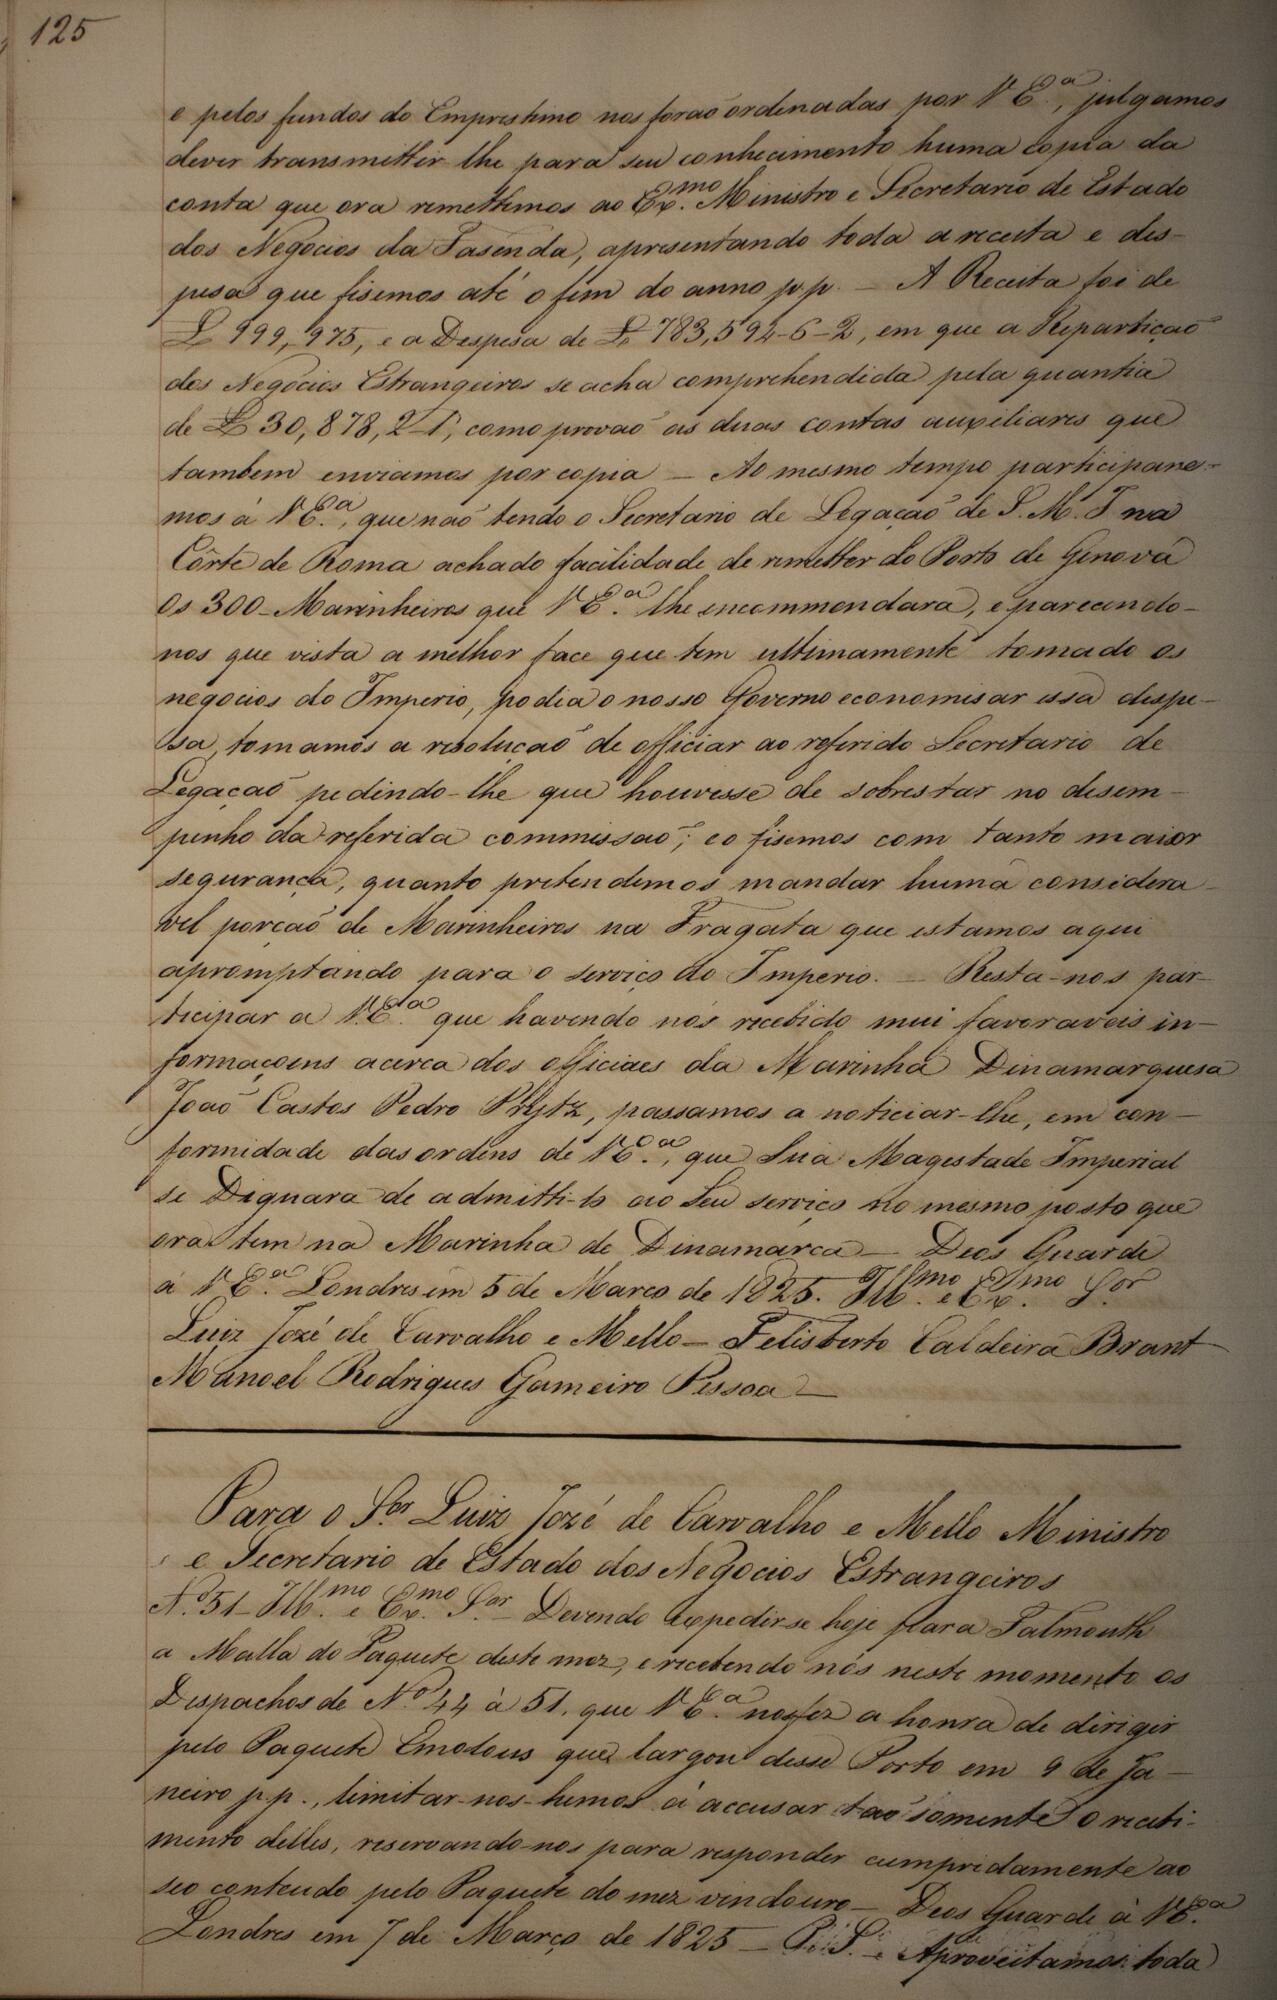 125
e pelos fundos do Emprestimo nos forão ordenadas por V Ex.ª, julgamos
dever transmittir-lhe para seu conhecimento huma copia da
conta que ora remettemos ao Ex.mo Ministro e Secretario de Estado
dos Negocios da Fasenda, apresentando toda a receita e des-
pesa que fisemos até o fim do anno p.p. — A Receita foi de
£ 999,975, e a Despesa de £ 783,594-6-2, em que a Repartição
dos Negocios Estrangeiros se acha comprehendida pela quantia
de £ 30,878,2-1, como provão as duas contas auxiliares que
tambem enviamos por copia — Ao mesmo tempo participare-
mos á V Ex.ª, que não tendo o Secretario de Legação de S. M. I. na
Côrte de Roma achado facilidade de remetter do Porto de Genova
Os 300 Marinheiros que V Ex.ª lhe encommendara, e parecendo-
nos que vista a melhor face que tem ultimamente tomado os
negocios do Imperio, podia o nosso Governo economisar essa despe-
sa, tomamos a resolução de officiar ao referido Secretario de
Legação pedindo-lhe que houvesse de sobrestar no desem-
penho da referida commissão; e o fisemos com tanto maior
segurança, quanto pretendemos mandar huma considera-
vel porção de Marinheiros na Fragata que estamos aqui
apromptando para o serviço do Imperio. — Resta-nos par-
ticipar a V. Ex.ª que havendo nós recebido mui favoraveis in-
formaçoens acerca dos officiaes da Marinha Dinamarquesa
João Castos Pedro Prytz, passamos a noticiar-lhe, em con-
formidade das ordens de V Ex.ª, que Sua Magestade Imperial
se Dignara de admitti-lo ao Seu serviço no mesmo posto que
ora tem na Marinha de Dinamarca — Deos Guarde
a V Ex.ª Londres em 5 de Março de 1825. Ill.mo e Ex.mo S.or
Luiz Jozé de Carvalho e Mello — Felisberto Caldeira Brant
Manoel Rodrigues Gameiro Pessoa —
Para o S.or Luiz Jozé de Carvalho e Mello Ministro
e Secretario de Estado dos Negocios Estrangeiros
N.º 51 — Ill.mo e Ex.mo S.or — Devendo expedir-se hoje para Falmouth
a Malla do Paquete deste mez, e recebendo nós neste momento os
Despachos de N.º 44 à 51. que V Ex.ª nos fez a honra de dirigir
pelo Paquete que largou desse Porto em 9 de Ja-
neiro p.p., limitar-nos-hemos á accusar tão somente o recebi-
mento delles, reservando-nos para responder cumpridamente ao
seo conteudo pelo Paquete do mez vindouro — Deos Guarde à V Ex.ª
Londres em 7 de Março de 1825 — P. S. — Aproveitamos toda